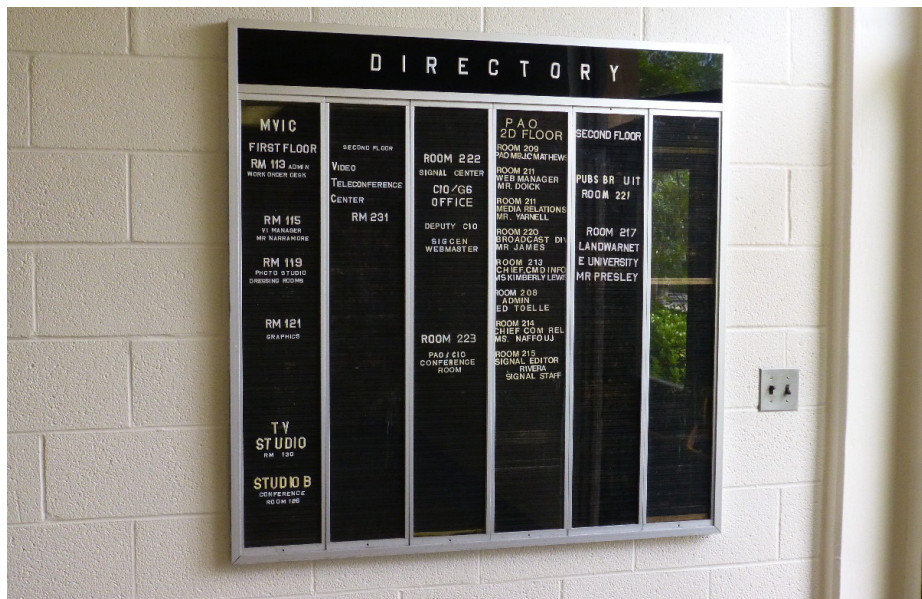 DIRECTORY
MVIC
FIRST FLOOR
RM 113 ADMIN
WORK ORDER DESK
RM 115
VI MANAGER
MR NARRAMORE
RM 119
PHOTO STUDIO
DRESSING ROOMS
RM 121
GRAPHICS
TV
STUDIO
RM 130
STUDIO B
CONFERENCE
ROOM 126
SECOND FLOOR
VIDEO
TELECONFERENCE
CENTER
RM 231
ROOM 222
SIGNAL CENTER
CIO/G6
OFFICE
DEPUTY CIO
SIGCEN
WEBMASTER
ROOM 223
PAO/CIO
CONFERENCE
ROOM
PAO
2D FLOOR
ROOM 209
PAO MBJC MATHEWS
ROOM 211
WEB MANAGER
MR. DOICK
ROOM 211
MEDIA RELATIONS
MR. YARNELL
ROOM 220
BROADCAST DIV
MR JAMES
ROOM 213
CHIEF, CMD INFO
MS KIMBERLY LEWIS
ROOM 208
ADMIN
ED TOELLE
ROOM 214
CHIEF COM REL
MS. NAFFOUJ
ROOM 215
SIGNAL EDITOR
RIVERA
SIGNAL STAFF
SECOND FLOOR
PUBS BR UIT
ROOM 221
ROOM 217
LANDWARNET
E UNIVERSITY
MR PRESLEY